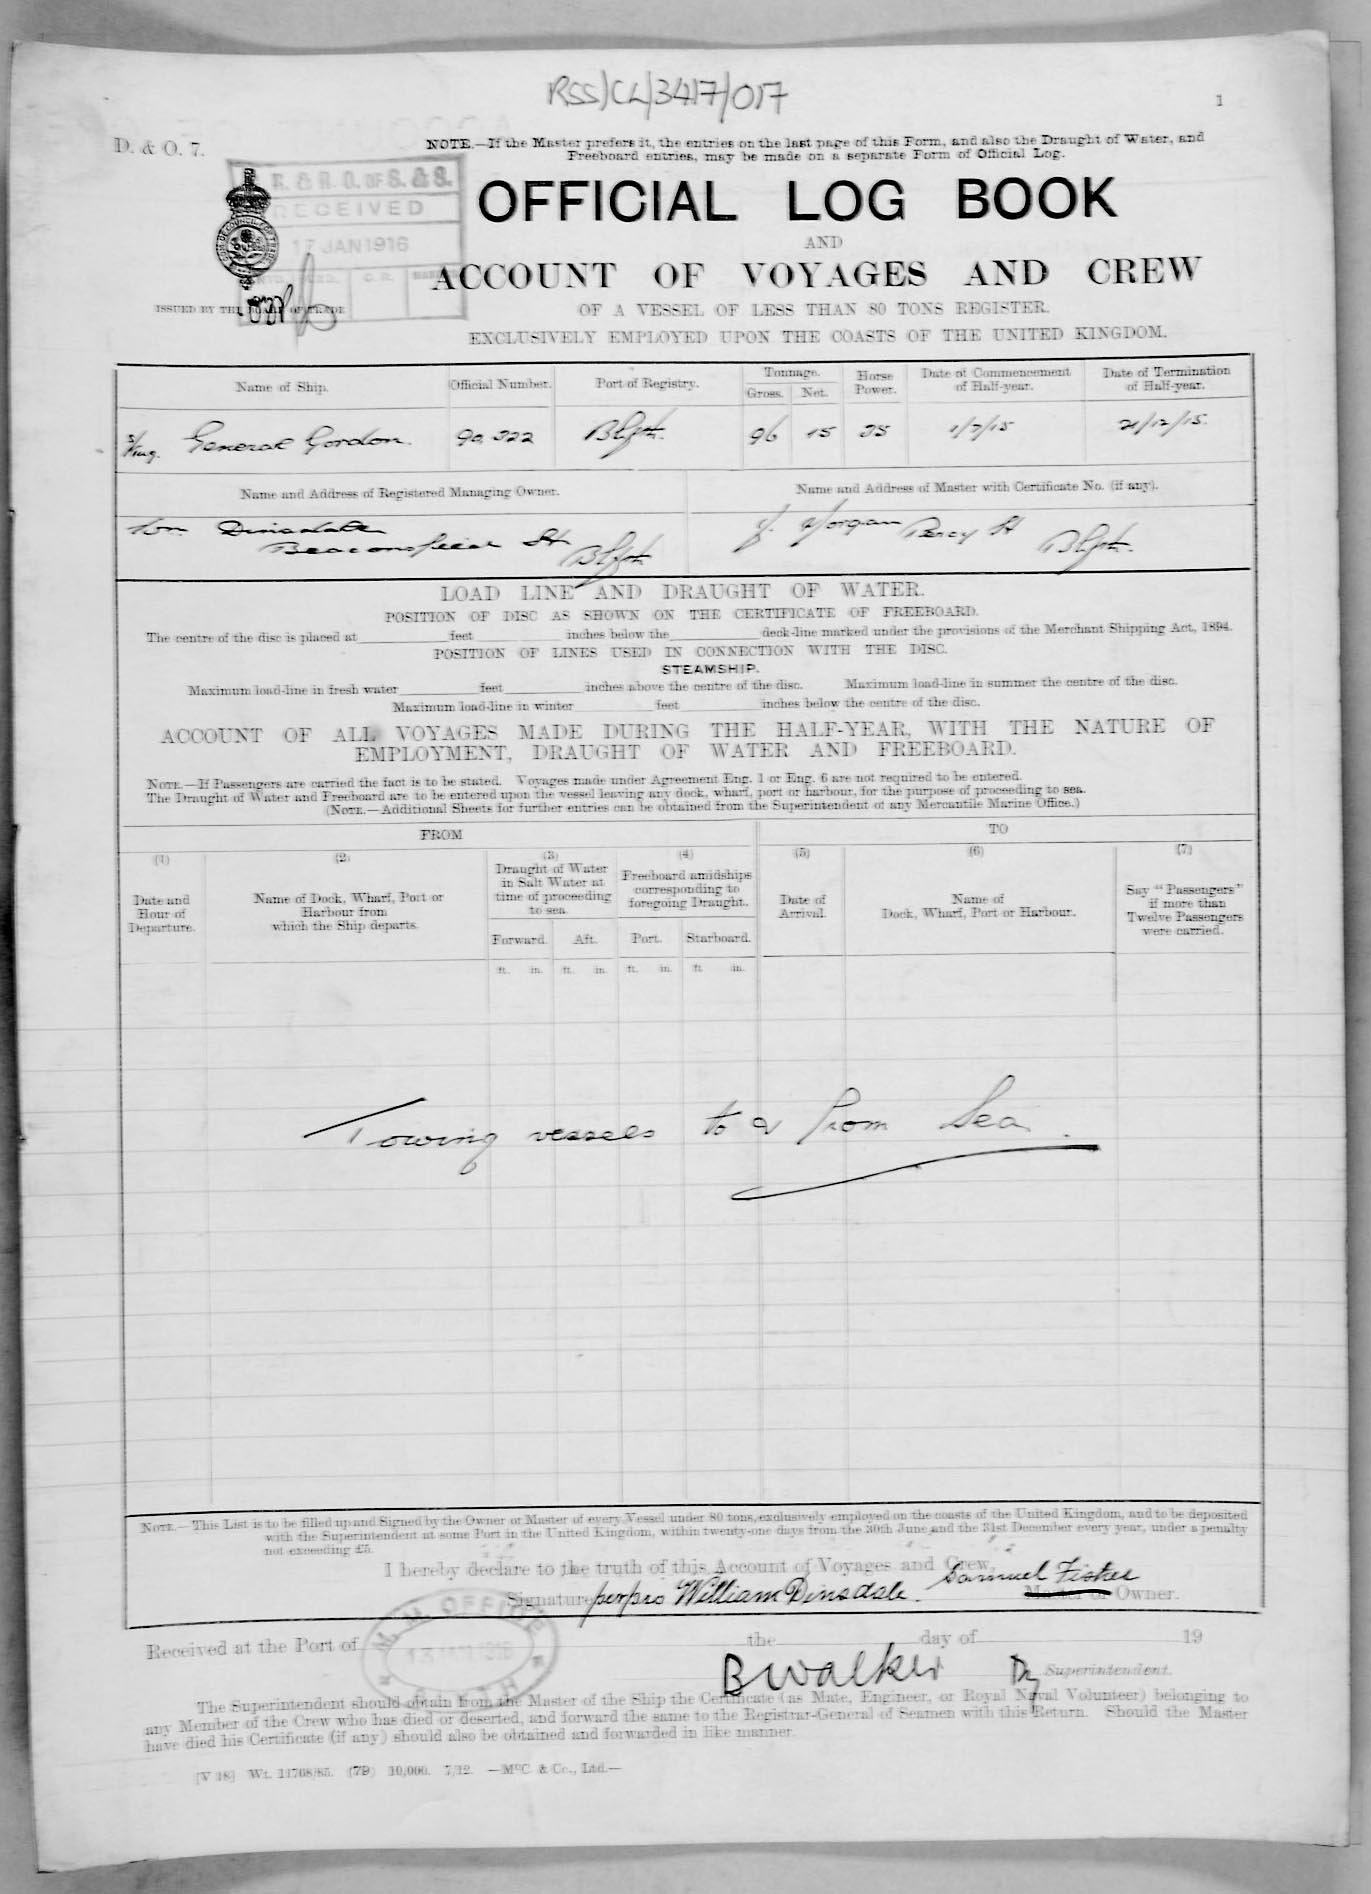 RSS/CL/3417/017
1
D. & O. 7.
NOTE.—If the Master prefers it, the entries on the last page of this Form, and also the Draught of Water, and
Freeboard entries, may be made on a separate Form of Official Log.
R. & R. O. OF S. & S.
RECEIVED
17 JAN 1916
C. R.
OFFICIAL LOG BOOK
AND
ACCOUNT OF VOYAGES AND CREW
ISSUED BY THE BOARD OF TRADE
OF A VESSEL OF LESS THAN 80 TONS REGISTER.
EXCLUSIVELY EMPLOYED UPON THE COASTS OF THE UNITED KINGDOM.
Name of Ship. Official Number. Port of Registry. Tonnage. Gross. Net. Horse Power. Date of Commencement of Half-year. Date of Termination of Half-year.
S/Tug. General Gordon. 90,522 Blyth. 96 15 35 1/7/15 31/12/15.
Name and Address of Registered Managing Owner. Name and Address of Master with Certificate No. (if any).
Wm Dinsdale J. Morgan Percy St Blyth.
Beaconsfield St Blyth
LOAD LINE AND DRAUGHT OF WATER.
POSITION OF DISC AS SHOWN ON THE CERTIFICATE OF FREEBOARD.
The centre of the disc is placed at feet inches below the deck-line marked under the provisions of the Merchant Shipping Act, 1894.
POSITION OF LINES USED IN CONNECTION WITH THE DISC.
STEAMSHIP.
Maximum load-line in fresh water feet inches above the centre of the disc. Maximum load-line in summer the centre of the disc.
Maximum load-line in winter feet inches below the centre of the disc.
ACCOUNT OF ALL VOYAGES MADE DURING THE HALF-YEAR, WITH THE NATURE OF
EMPLOYMENT, DRAUGHT OF WATER AND FREEBOARD.
NOTE.—If Passengers are carried the fact is to be stated. Voyages made under Agreement Eng. 1 or Eng. 6 are not required to be entered.
The Draught of Water and Freeboard are to be entered upon the vessel leaving any dock, wharf, port or harbour, for the purpose of proceeding to sea.
(NOTE.—Additional Sheets for further entries can be obtained from the Superintendent of any Mercantile Marine Office.)
FROM TO
(1) (2) (3) (4) (5) (6) (7)
Date and Hour of Departure.
Name of Dock, Wharf, Port or Harbour from which the Ship departs.
Draught of Water in Salt Water at time of proceeding to sea.
Freeboard amidships corresponding to foregoing Draught.
Date of Arrival.
Name of Dock, Wharf, Port or Harbour.
Say "Passengers" if more than Twelve Passengers were carried.
Forward. Aft. Port. Starboard.
ft. in. ft. in. ft. in. ft. in.
Towing vessels to & from Sea.
NOTE.—This List is to be filled up and Signed by the Owner or Master of every Vessel under 80 tons, exclusively employed on the coasts of the United Kingdom, and to be deposited
with the Superintendent at some Port in the United Kingdom, within twenty-one days from the 30th June and the 31st December every year, under a penalty
not exceeding £5.
I hereby declare to the truth of this Account of Voyages and Crew,
Signature perpro William Dinsdale. Samuel Fisher Master or Owner.
M. M. OFFICE
13 JAN 1916
BLYTH
Received at the Port of the day of 19
B Walker Dy Superintendent.
The Superintendent should obtain from the Master of the Ship the Certificate (as Mate, Engineer, or Royal Naval Volunteer) belonging to
any Member of the Crew who has died or deserted, and forward the same to the Registrar-General of Seamen with this Return. Should the Master
have died his Certificate (if any) should also be obtained and forwarded in like manner.
[V 18] Wt. 11708/85. (79) 10,000. 7/12. —McC. & Co., Ltd.—